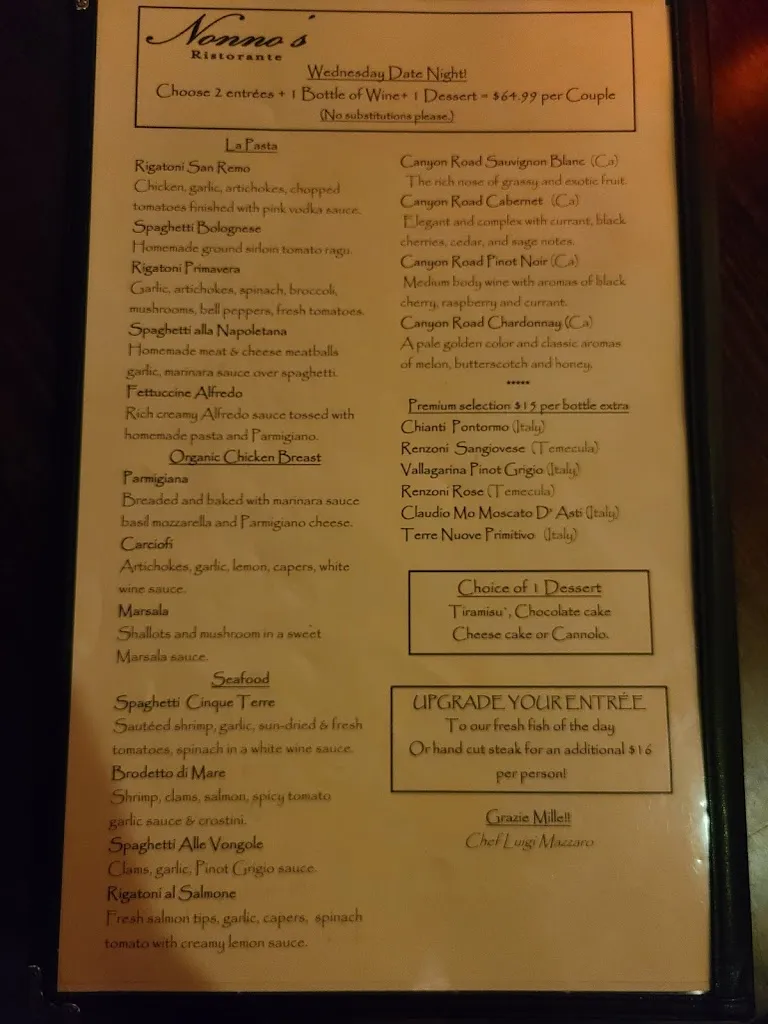 Nonno's
Ristorante
Wednesday Date Night!
Choose 2 entrées + 1 Bottle of Wine+ 1 Dessert = $64.99 per Couple
(No substitutions please.)
La Pasta
Rigatoni San Remo
Chicken, garlic, artichokes, chopped
tomatoes finished with pink vodka sauce.
Spaghetti Bolognese
Homemade ground sirloin tomato ragu.
Rigatoni Primavera
Garlic, artichokes, spinach, broccoli,
mushrooms, bell peppers, fresh tomatoes.
Spaghetti alla Napoletana
Homemade meat & cheese meatballs
garlic, marinara sauce over spaghetti.
Fettuccine Alfredo
Rich creamy Alfredo sauce tossed with
homemade pasta and Parmigiano.
Organic Chicken Breast
Parmigiana
Breaded and baked with marinara sauce
basil mozzarella and Parmigiano cheese.
Carciofi
Artichokes, garlic, lemon, capers, white
wine sauce.
Marsala
Shallots and mushroom in a sweet
Marsala sauce.
Seafood
Spaghetti Cinque Terre
Sautéed shrimp, garlic, sun-dried & fresh
tomatoes, spinach in a white wine sauce.
Brodetto di Mare
Shrimp, clams, salmon, spicy tomato
garlic sauce & crostini.
Spaghetti Alle Vongole
Clams, garlic, Pinot Grigio sauce.
Rigatoni al Salmone
Fresh salmon tips, garlic, capers, spinach
tomato with creamy lemon sauce.
Canyon Road Sauvignon Blanc (Ca)
The rich nose of grassy and exotic fruit.
Canyon Road Cabernet (Ca)
Elegant and complex with currant, black
cherries, cedar, and sage notes.
Canyon Road Pinot Noir (Ca)
Medium body wine with aromas of black
cherry, raspberry and currant.
Canyon Road Chardonnay (Ca)
A pale golden color and classic aromas
of melon, butterscotch and honey.
*****
Premium selection $15 per bottle extra
Chianti Pontormo (Italy)
Renzoni Sangiovese (Temecula)
Vallagarina Pinot Grigio (Italy)
Renzoni Rose (Temecula)
Claudio Mo Moscato D' Asti (Italy)
Terre Nuove Primitivo (Italy)
Choice of 1 Dessert
Tiramisu`, Chocolate cake
Cheese cake or Cannolo.
UPGRADE YOUR ENTRÉE
To our fresh fish of the day
Or hand cut steak for an additional $16
per person!
Grazie Mille!!
Chef Luigi Mazzaro